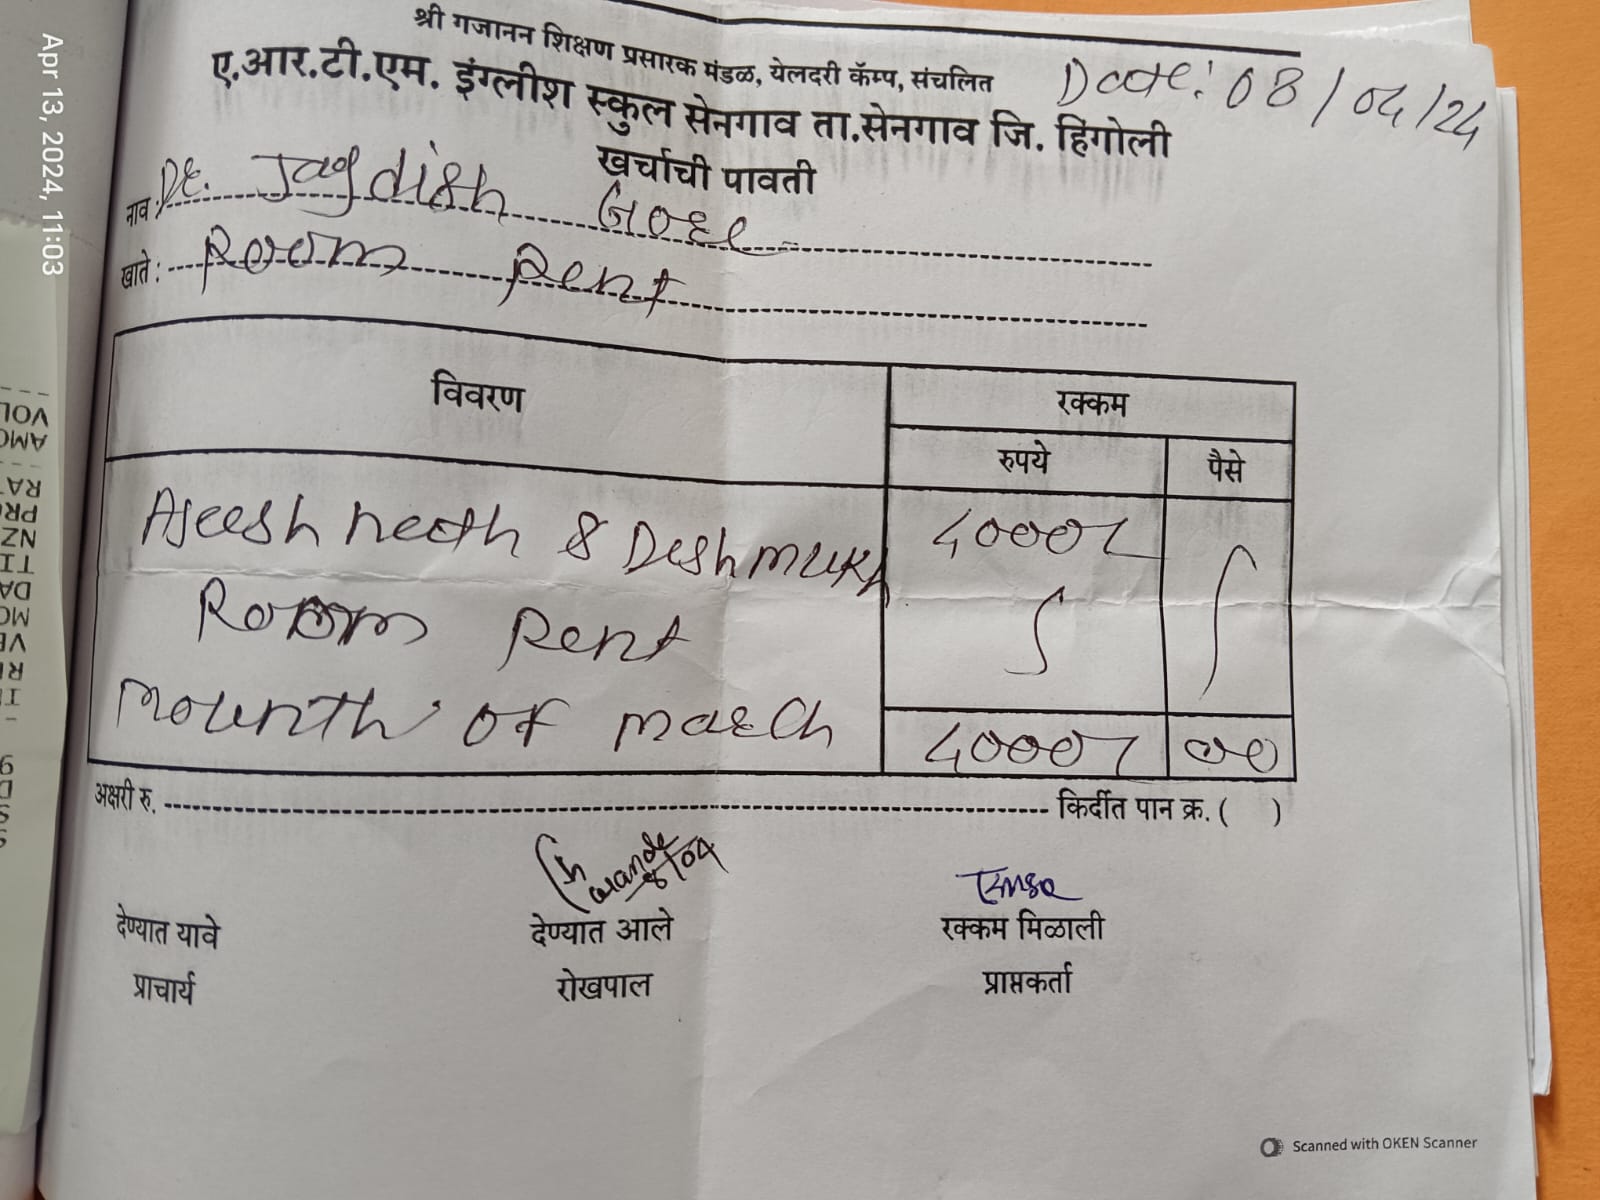 Apr 13, 2024, 11:03
श्री गजानन शिक्षण प्रसारक मंडळ, येलदरी कॅम्प, संचलित
Date: 08/04/24
ए.आर.टी.एम. इंग्लीश स्कुल सेनगाव ता.सेनगाव जि. हिंगोली
खर्चाची पावती
नाव : Dr. Jagdish Gore
खाते : Room Rent
विवरण रक्कम
रुपये पैसे
neeth & Deshmukh 4000/-
Room Rent
Mounth of March
4000/- 00
अक्षरी रु. किर्दीत पान क्र. ( )
8/04
देण्यात यावे देण्यात आले रक्कम मिळाली
प्राचार्य रोखपाल प्राप्तकर्ता
VOL
AMO
RAT
PR
NZ
TI
DA
MO
VE
Scanned with OKEN Scanner